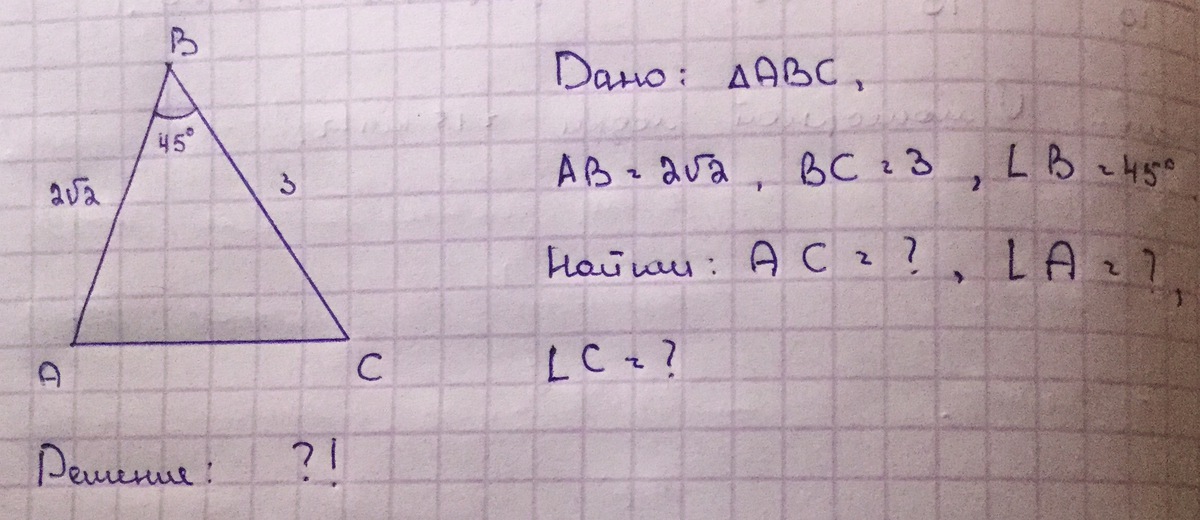 B
45°
2√2
3
A
C
Дано: ΔABC,
AB = 2√2, BC = 3, ∠B = 45°
Найти: AC = ?, ∠A = ?,
∠C = ?
Решение: ?!